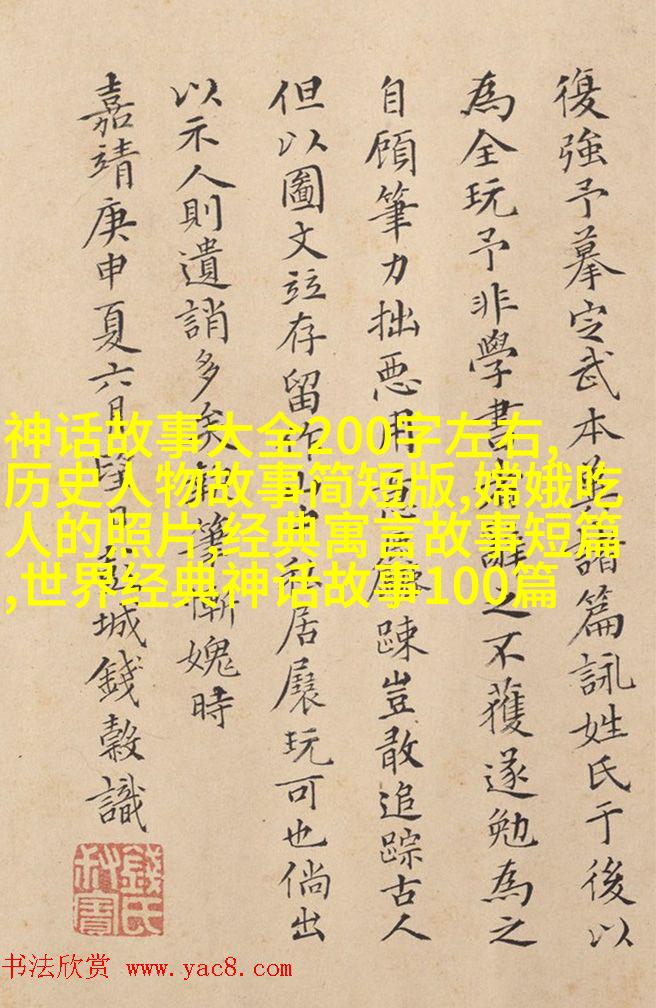 復強予摹定武本並諸篇詠姓氏于後以
為全玩予非學書之不獲遂勉為之
自顧筆力拙惡用踈豈敢追踪古人
但以圖文竝存留私居展玩可也倘出
以示人則遺誚多矣筆慚媿時
嘉靖庚申夏六月望日城錢穀識
錢氏叔寶
神话故事大全200字左右,
历史人物故事简短版,嫦娥吃
人的照片,经典寓言故事短篇
,世界经典神话故事100篇
书法欣赏 www.yac8.com